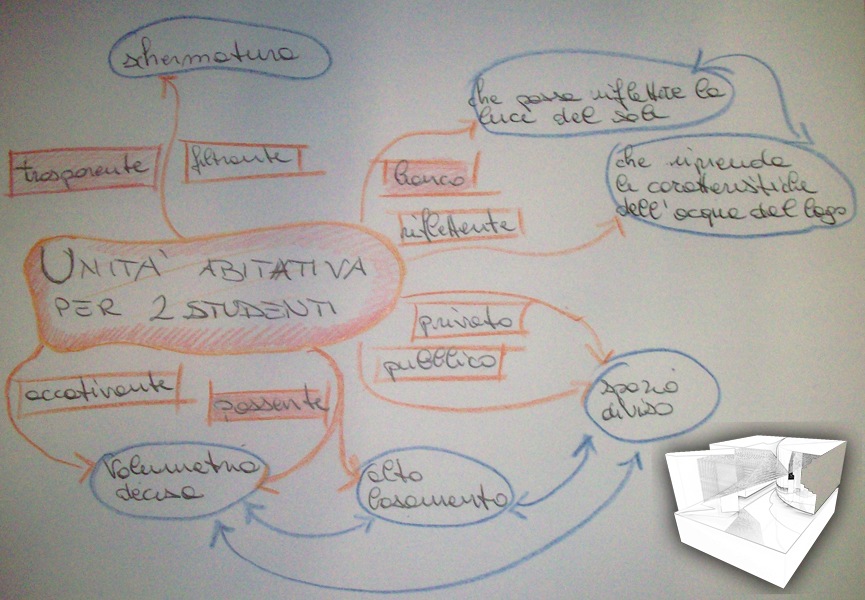 schermatura
che possa riflettere la
luce del sole
che riprenda
le caratteristiche
dell'acqua del lago
trasparente
filtrante
bianco
riflettente
UNITA' ABITATIVA
PER 2 STUDENTI
privato
pubblico
accattivante
possente
spazio
diviso
volumetria
decisa
alto
basamento